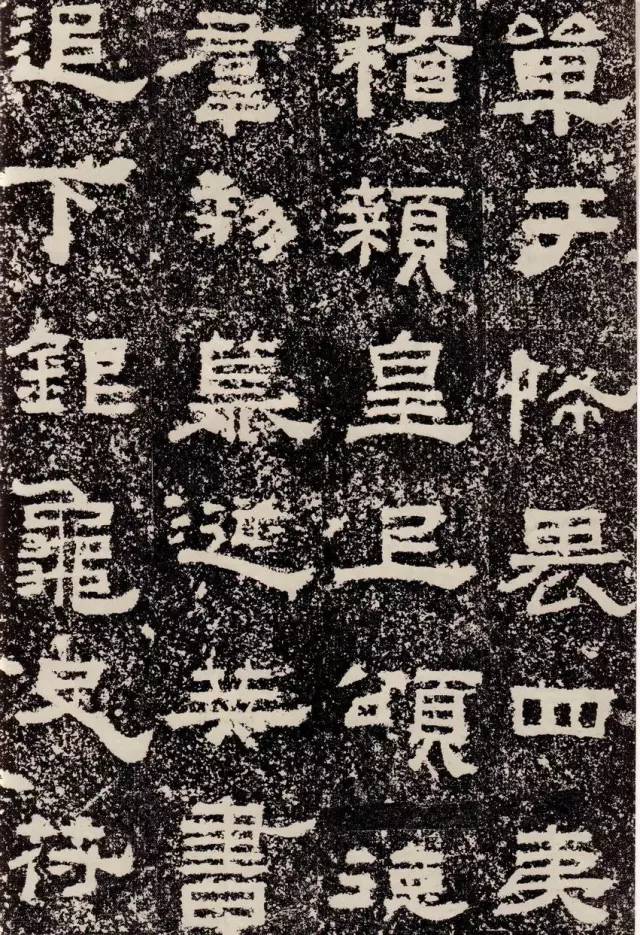 單于怖畏四夷
稽顙皇上頌德
羣黎慕涎筴書
追下銀龜史符